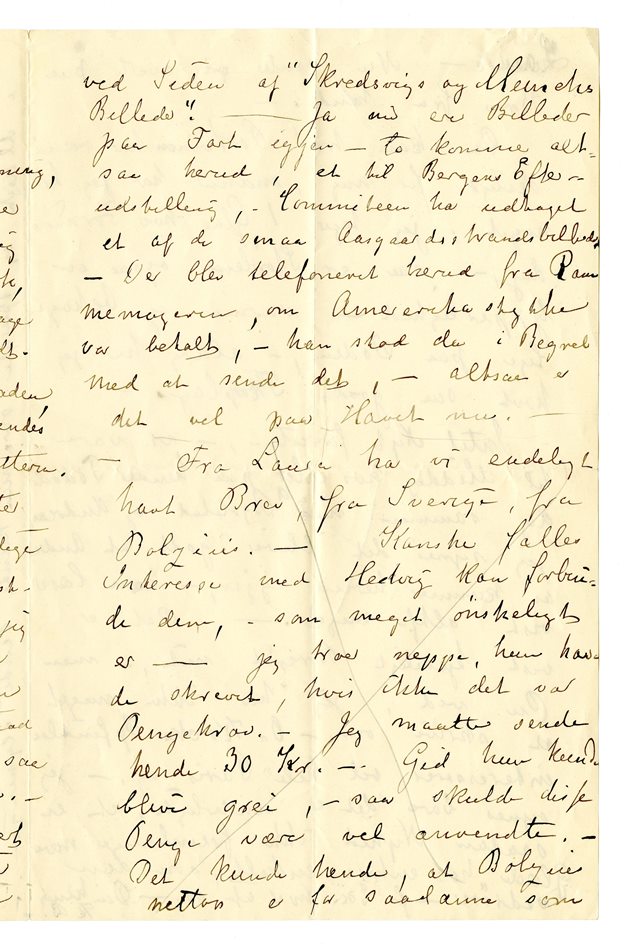 ved Siden af "Skredsvigs og Munchs
Billede". — Ja nu ere Billeder
paa Fart igjen – to komme alt-
saa herud, et til Bergens Efter-
udstilling, – Commiteen har udtaget
et af de smaa Aasgaardsstrandsbilleder
– Der blev telefoneret herud fra Ram
memageren, om Amererika stykke
var betalt, – han stod da i Begreb
med at sende det, – altsaa er
det vel paa Havet nu. –
– Fra Laura ha vi endeligt
havt Brev, fra Sverige, fra
Bolzius. – Kanske fælles
Interesse med Hedvig kan forbin-
de dem, – som meget ønskeligt
er — jeg troer neppe, hun hav-
de skrevet, hvis ikke det var
Pengekrav. – Jeg maatte sende
hende 30 Kr. – Gid hun kunde
blive grei, – saa skulde disse
Penge være vel anvendte. –
Det kunde hende, at Bolzius
nettop e for saadanne som